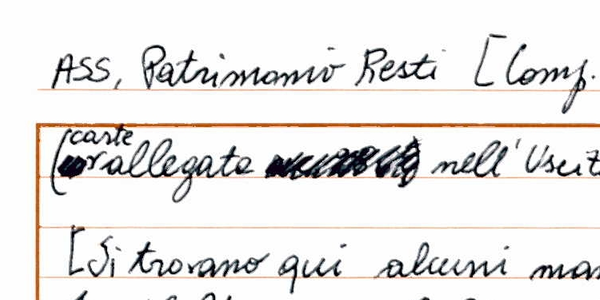 ASS, Patrimonio Resti [Comp.
(carte
allegate nell'Uscit
[Si trovano qui alcuni man